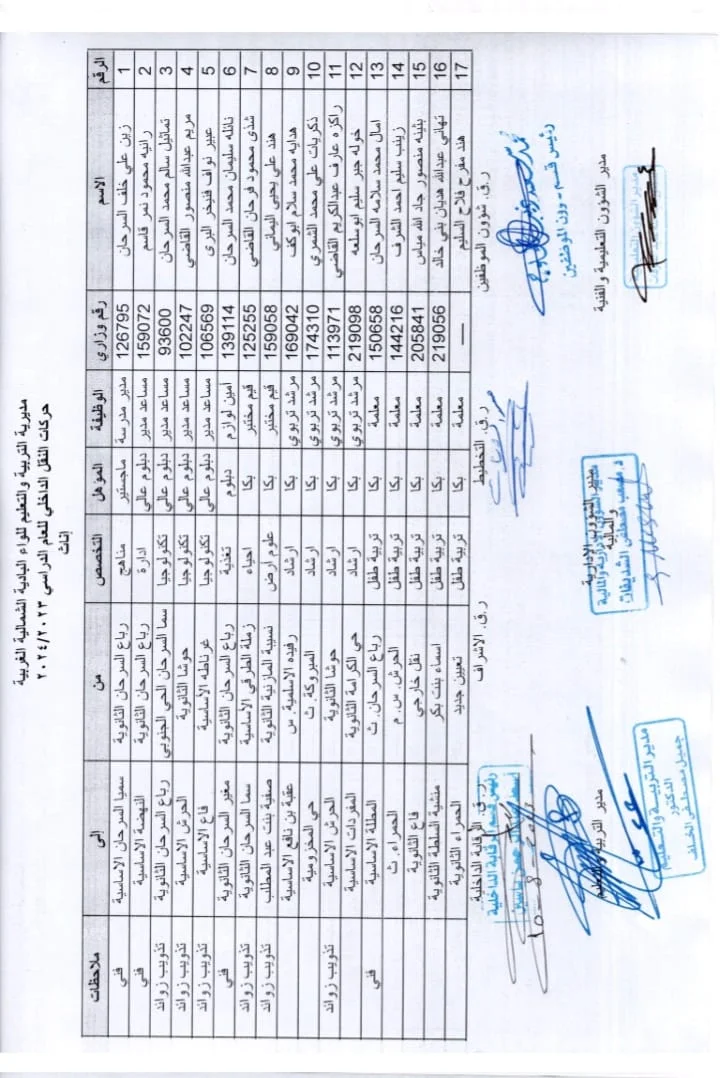 مديرية التربية والتعليم للواء البادية الشمالية الغربية
حركات النقل الداخلي للعام الدراسي ٢٠٢٤/٢٠٢٣
إناث
الرقم الاسم رقم وزاري الوظيفة المؤهل التخصص من إلى ملاحظات
1 زين علي خلف السرحان 126795 مدير مدرسة ماجستير مناهج رباع السرحان الثانوية سميا السرحان الاساسية فني
2 رانيه محمود نمر قاسم 159072 مساعد مدير دبلوم عالي ادارة رباع السرحان الثانوية النهضة الاساسية فني
3 تماثيل سالم محمد السرحان 93600 مساعد مدير دبلوم عالي تكنولوجيا سما السرحان الحي الجنوبي رباع السرحان الثانوية تذويب زوائد
4 مريم عبدالله منصور القاضي 102247 مساعد مدير دبلوم عالي تكنولوجيا حوشا الثانوية الحرش الاساسية تذويب زوائد
5 عبير نواف فنيخر البري 106569 مساعد مدير دبلوم عالي تكنولوجيا غرناطه الأساسية فاع الاساسية تذويب زوائد
6 نائله سليمان محمد السرحان 139114 أمين لوازم دبلوم تغذية رباع السرحان الثانوية مغير السرحان الثانوية فني
7 شذى محمود فرحان القاضي 125255 قيم مختبر بكا احياء زملة الطرقي الأساسية سما السرحان الثانوية تذويب زوائد
8 هند علي يحيى اليماني 159058 قيم مختبر بكا علوم أرض نسيبة المازنية الثانوية صفية بنت عبد المطلب تذويب زوائد
9 هدايه محمد سلام ابوكف 169042 مرشد تربوي بكا ارشاد رفيده الاسلمية. س عقبة بن نافع الاساسية
10 ذكريات علي محمد الشمري 174310 مرشد تربوي بكا ارشاد المبروكة. ث حي المخزومية
11 راكزه عارف عبدالكريم القاضي 113971 مرشد تربوي بكا ارشاد حوشا الثانوية الحرش الاساسية تذويب زوائد
12 خوله جبر سليم ابوسلعه 219098 مرشد تربوي بكا ارشاد حي الكرامة الثانوية المفردات الاساسية
13 امال محمد سلامه السرحان 150658 معلمة بكا تربية طفل رباع السرحان. ث المطلة الاساسية فني
14 زينب سليم احمد الشرف 144216 معلمة بكا تربية طفل الحرش. س. م الحمراء. ث
15 بثينه منصور جاد الله مياس 205841 معلمة بكا تربية طفل نقل خارجي فاع الثانوية
16 تهاني عبدالله هديان بني خالد 219056 معلمة بكا تربية طفل اسماء بنت بكر منشية السلطة الثانوية
17 هند مفرح فلاح السليم — معلمة بكا تربية طفل تعيين جديد الحمراء الثانوية
ر.ق. شؤون الموظفين ر.ق. التخطيط ر.ق. الاشراف ر.ق. الرقابة الداخلية
رئيس قسم شؤون الموظفين
مدير الشؤون التعليمية والفنية مدير الشؤون الادارية والمالية مدير التربية والتعليم
مدير الشؤون الإدارية والمالية
مدير التربية والتعليم
الدكتور
جميل مصطفى الخلف